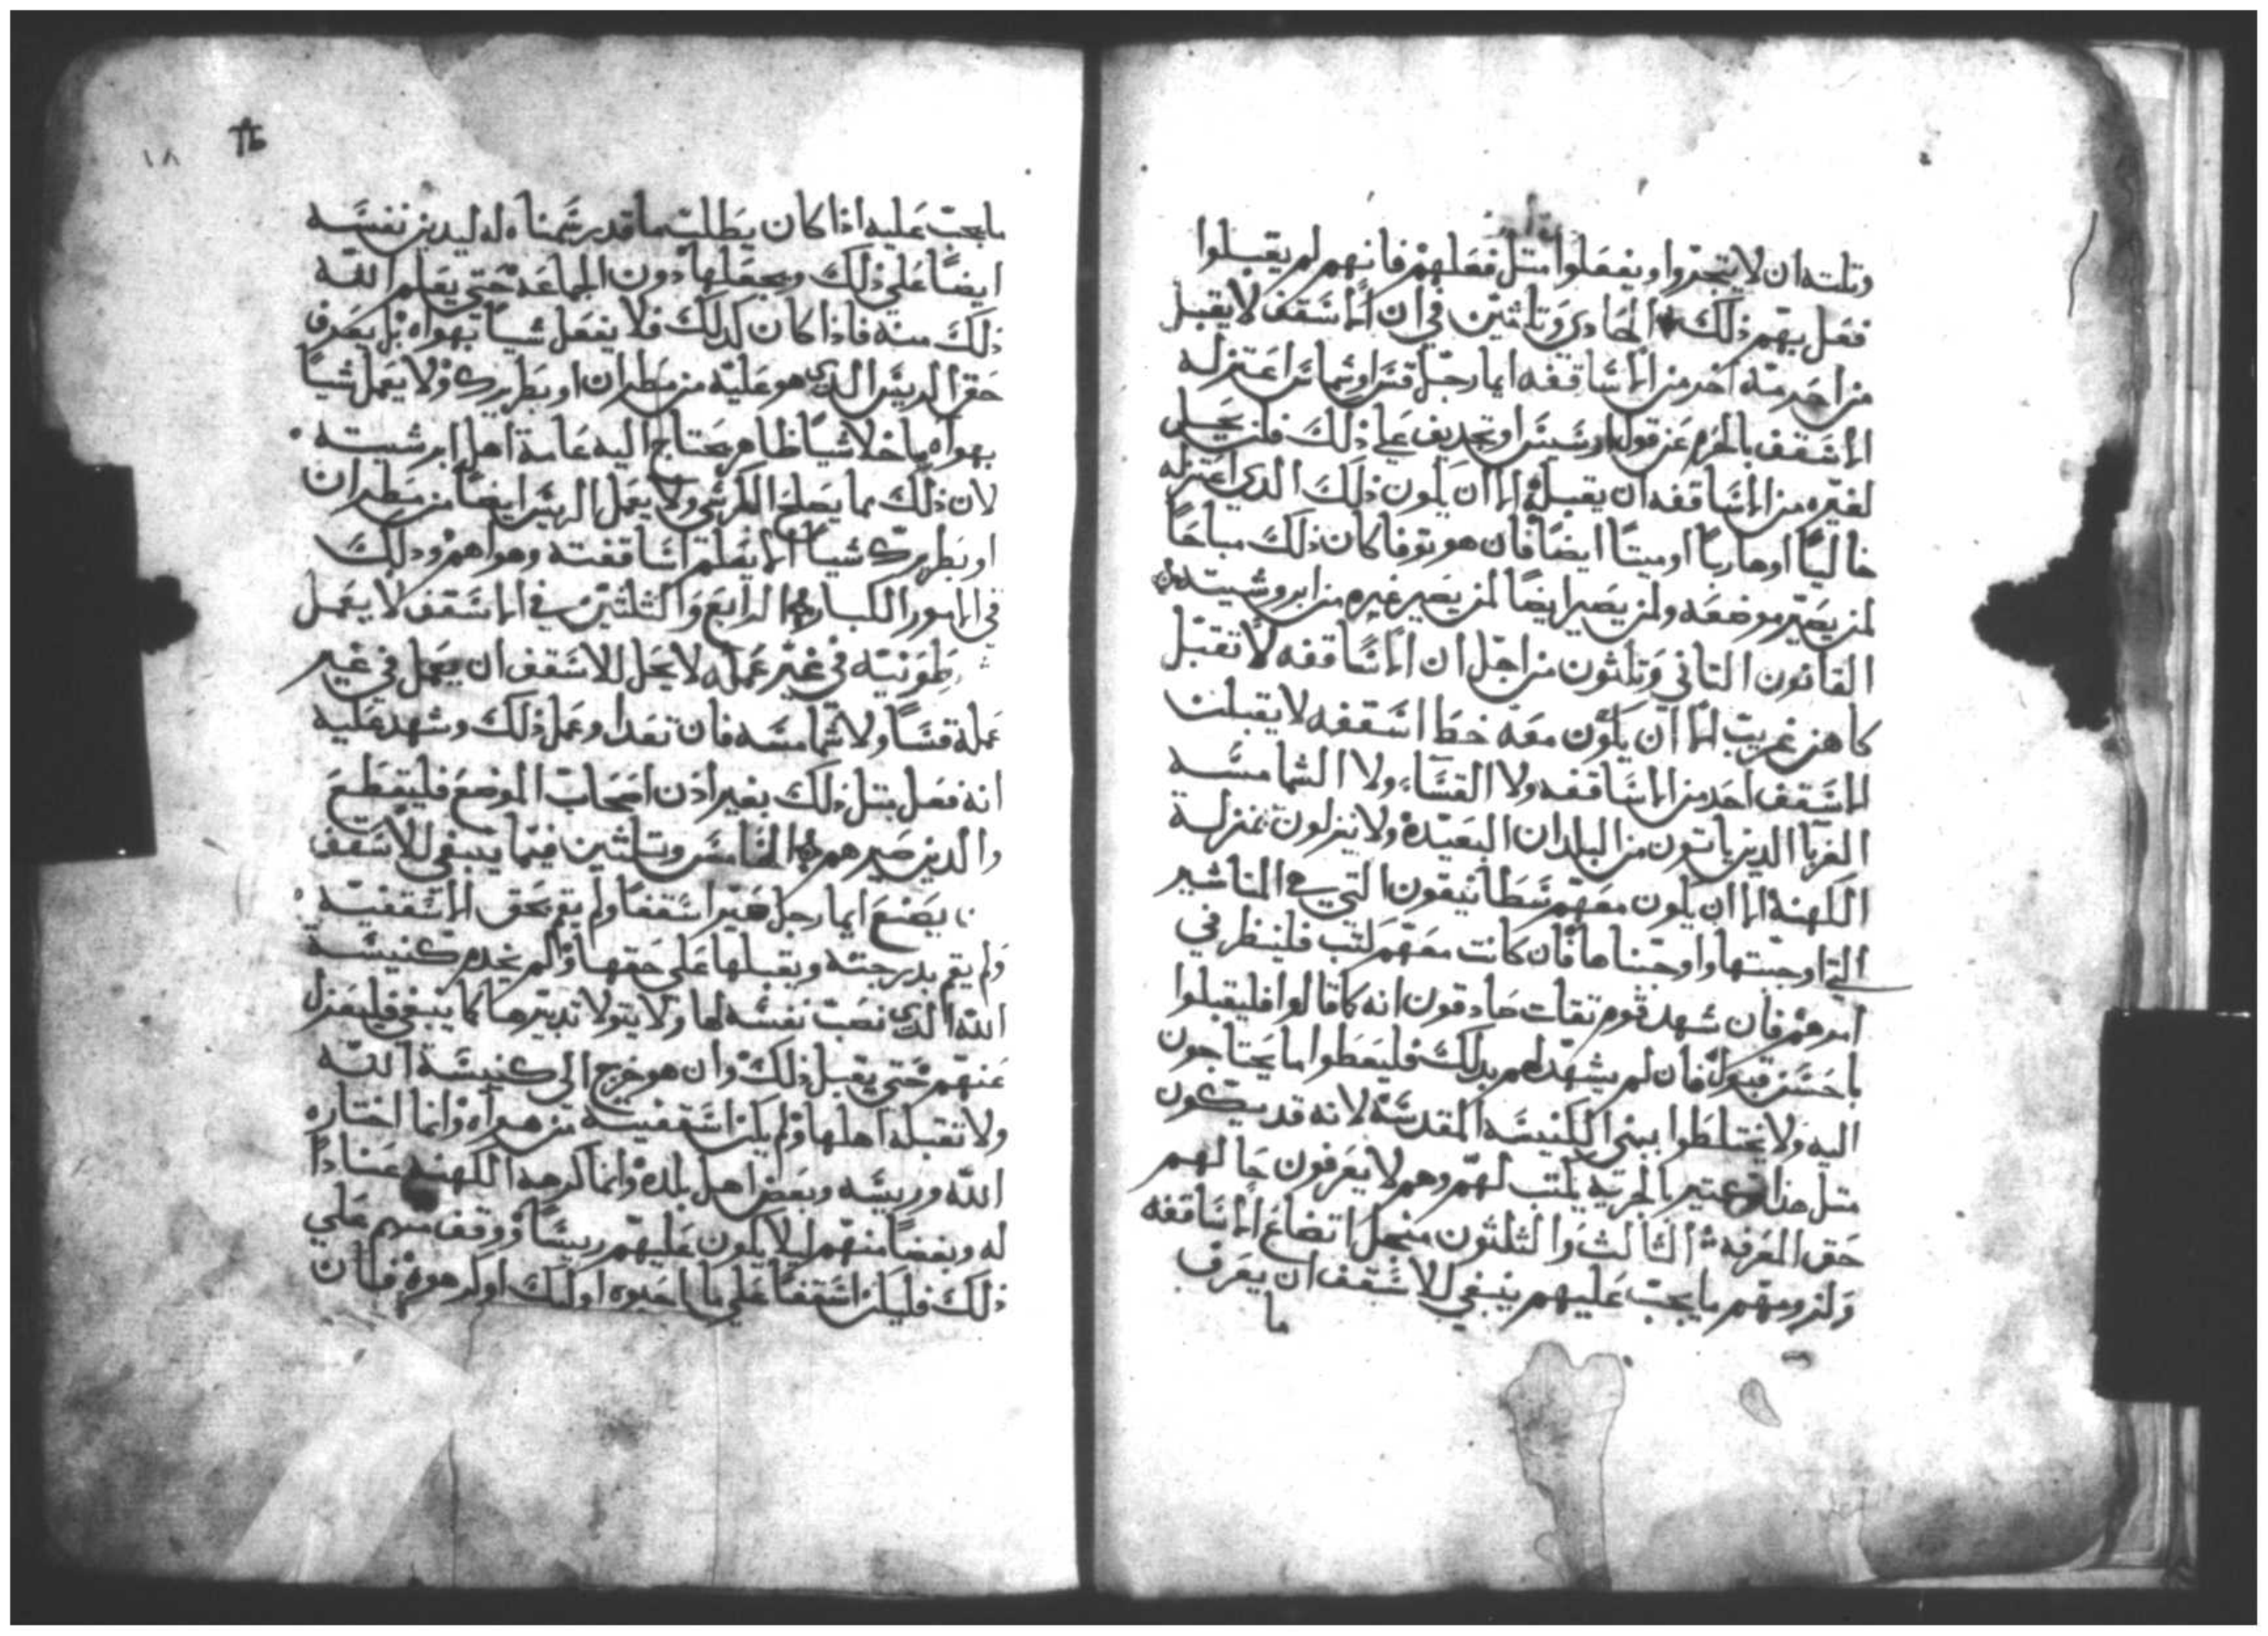 وتلته ان لا يتجروا ويفعلوا متل فعلهم فانهم لم يقبلوا
فعل بهم ذلك الحادي وتلتين في ان الاسقف لا يقبل
من احرمه اخر من الاساقفه ايما رجل قس او شماس اعتزله
الاسقف بالحرم عن قول او سبب او تجديف علي ذلك فلن يحل
لغيره من الاساقفه ان يقبله الا ان يكون ذلك الدي اعتزله
خاليا او هاربا او ميتا ايضا فان هو توفا كان ذلك مباحا
لمن يصير موضعه ولمن يصير ايضا لمن يصير غيره من ابروشيته
القانون التاني وتلتون من اجل ان الاساقفه لا تقبل
كاهن غريب الا ان يكون معه خط اسقفه لا يقبلن
الاسقف احد من الاساقفه ولا القسا ولا الشمامسه
الغربا الدين ياتون من البلدان البعيده ولا ينزلون بمنزلة
الكهنه الا ان يكون معهم سطاتيقون التي هي المناشير
التي اوجبتها واوجبناها فان كانت معهم كتب فلينظر في
امرهم فان شهد قوم تقات صادقون انه كما قالوا فليقبلوا
باحسن قبول فان لم يشهد لهم بدلك فليعطوا ما يحتاجون
اليه ولا يختلطوا ببني الكنيسه المقدسه لانه قد يكون
متل هذا بالحريه يكتب لهم وهم لا يعرفون حالهم
حق المعرفه الثالث والثلثون من اجل اتضاع الاساقفه
ولزومهم ما يجب عليهم ينبغي للاسقف ان يعرف
ما
١٨
ما يجب عليه اذا كان يطلب ما قد له ليدين نفسه
ايضا علي ذلك ويجعلها دون الجماعه حتي يعلم الله
ذلك منه فاذا كان كدلك فلا يفعل شيا بهواه بل يعرف
حق الريس الدي هو عليه من مطران او بطريرك ولا يعمل شيا
بهواه ما خلا شيا ظاهر يحتاج اليه عامة اهل ابرشيته
لان ذلك مما يصلح الكرسي ولا يعمل الريس ايضا من مطران
او بطريرك شيا الا بعلم اساقفته وهواهم ودلك
في الامور الكبار الرابع والثلثين في الاسقف لا يعمل
طونيه في غير عمله لا يحل للاسقف ان يعمل في غير
عمله قسا ولا شمامسه فان تعدا وعمل ذلك وشهد عليه
انه فعل متل ذلك بغير ادن اصحاب الموضع فليقطع
والدين صيرهم الخامس وتلتين فيما ينبغي للاسقف
يصنع ايما رجل صير اسقفا ولم يقم بحق الاسقفيه
ولم يقم بدرجته ويقبلها علي حقها ولم يخدم كنيسة
الله الدي نصب نفسه لها ولا يتولا تدبيرها كما ينبغي فليعزل
عنهم حتي يقبل ذلك وان هو خرج الي كنيسة الله
ولا تقبله اهلها ولم يكن اسقفيته من هواه وانما اختاره
الله وريسه وبعض اهل بلده وانما كرهه الكهنه عنادا
له وبغضا منهم ليلا يكون عليهم ريسا ووقف منهم علي
ذلك فليكن اسقفا علي ما احبوه اوليك او كرهوه فان